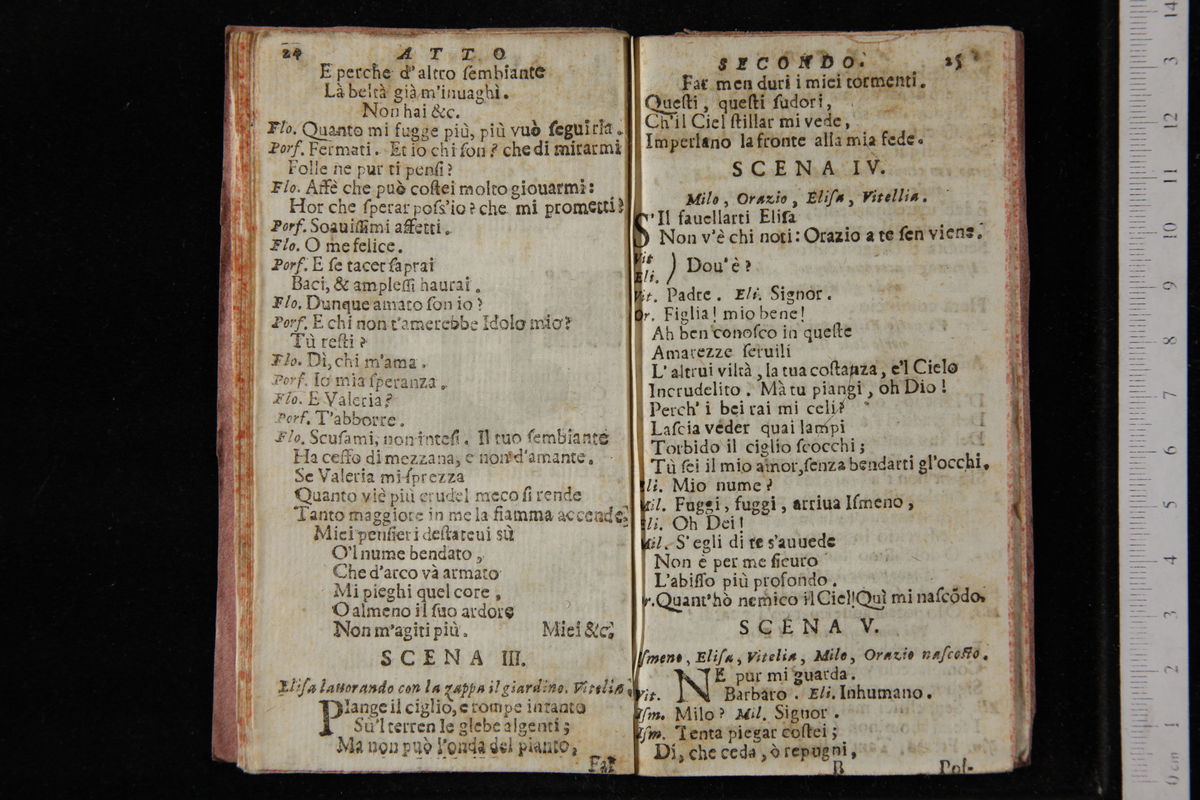 24 ATTO
E perche d'altro ſembiante
Là beltà già m'inuaghì.
Non hai &c.
Flo. Quanto mi fugge più, più vuò ſeguirla.
Porf. Fermati. Et io chi ſon? che di mirarmi
Folle ne pur ti penſi?
Flo. Affè che può coſtei molto giouarmi:
Hor che ſperar poſs'io? che mi prometti?
Porf. Soauiſſimi affetti.
Flo. O me felice.
Porf. E ſe tacer ſaprai
Baci, & ampleſſi haurai.
Flo. Dunque amato ſon io?
Porf. E chi non t'amerebbe Idolo mio?
Tù reſti?
Flo. Dì, chi m'ama.
Porf. Io mia ſperanza.
Flo. E Valeria?
Porf. T'abborre.
Flo. Scuſami, non inteſi. Il tuo ſembiante
Ha ceffo di mezzana, e non d'amante.
Se Valeria mi ſprezza
Quanto viè più crudel meco ſi rende
Tanto maggiore in me la fiamma accende,
Miei penſieri deſtateui sù
O'l nume bendato,
Che d'arco và armato
Mi pieghi quel core,
O almeno il ſuo ardore
Non m'agiti più. Miei &c.
SCENA III.
Eliſa lauorando con la zappa il giardino. Vitelia
PIange il ciglio, e rompe intanto
Sù'l terren le glebe algenti;
Ma non può l'onda del pianto,
Far
SECONDO. 25
Far men duri i miei tormenti.
Queſti, queſti ſudori,
Ch'il Ciel ſtillar mi vede,
Imperlano la fronte alla mia fede.
SCENA IV.
Milo, Orazio, Eliſa, Vitellia.
S'Il fauellarti Eliſa
Non v'è chi noti: Orazio a te ſen viene.
Vit
Eli. ) Dou'è?
Vit. Padre. Eli. Signor.
Or. Figlia! mio bene!
Ah ben conoſco in queſte
Amarezze ſeruili
L'altrui viltà, la tua coſtanza, e'l Cielo
Incrudelito. Mà tu piangi, oh Dio!
Perch' i bei rai mi celi?
Laſcia veder quai lampi
Torbido il ciglio ſcocchi;
Tù ſei il mio amor, ſenza bendarti gl'occhi.
Eli. Mio nume?
Mil. Fuggi, fuggi, arriua Iſmeno,
Eli. Oh Dei!
Mil. S'egli di te s'auuede
Non è per me ſicuro
L'abiſſo più profondo.
Or. Quant'hò nemico il Ciel! Quì mi naſcõdo.
SCENA V.
Iſmeno, Eliſa, Vitelia, Milo, Orazio naſcoſto.
NE pur mi guarda.
Vit. Barbaro. Eli. Inhumano.
Iſm. Milo? Mil. Signor.
Iſm. Tenta piegar coſtei;
Dì, che ceda, ò repugni,
B Poſ-